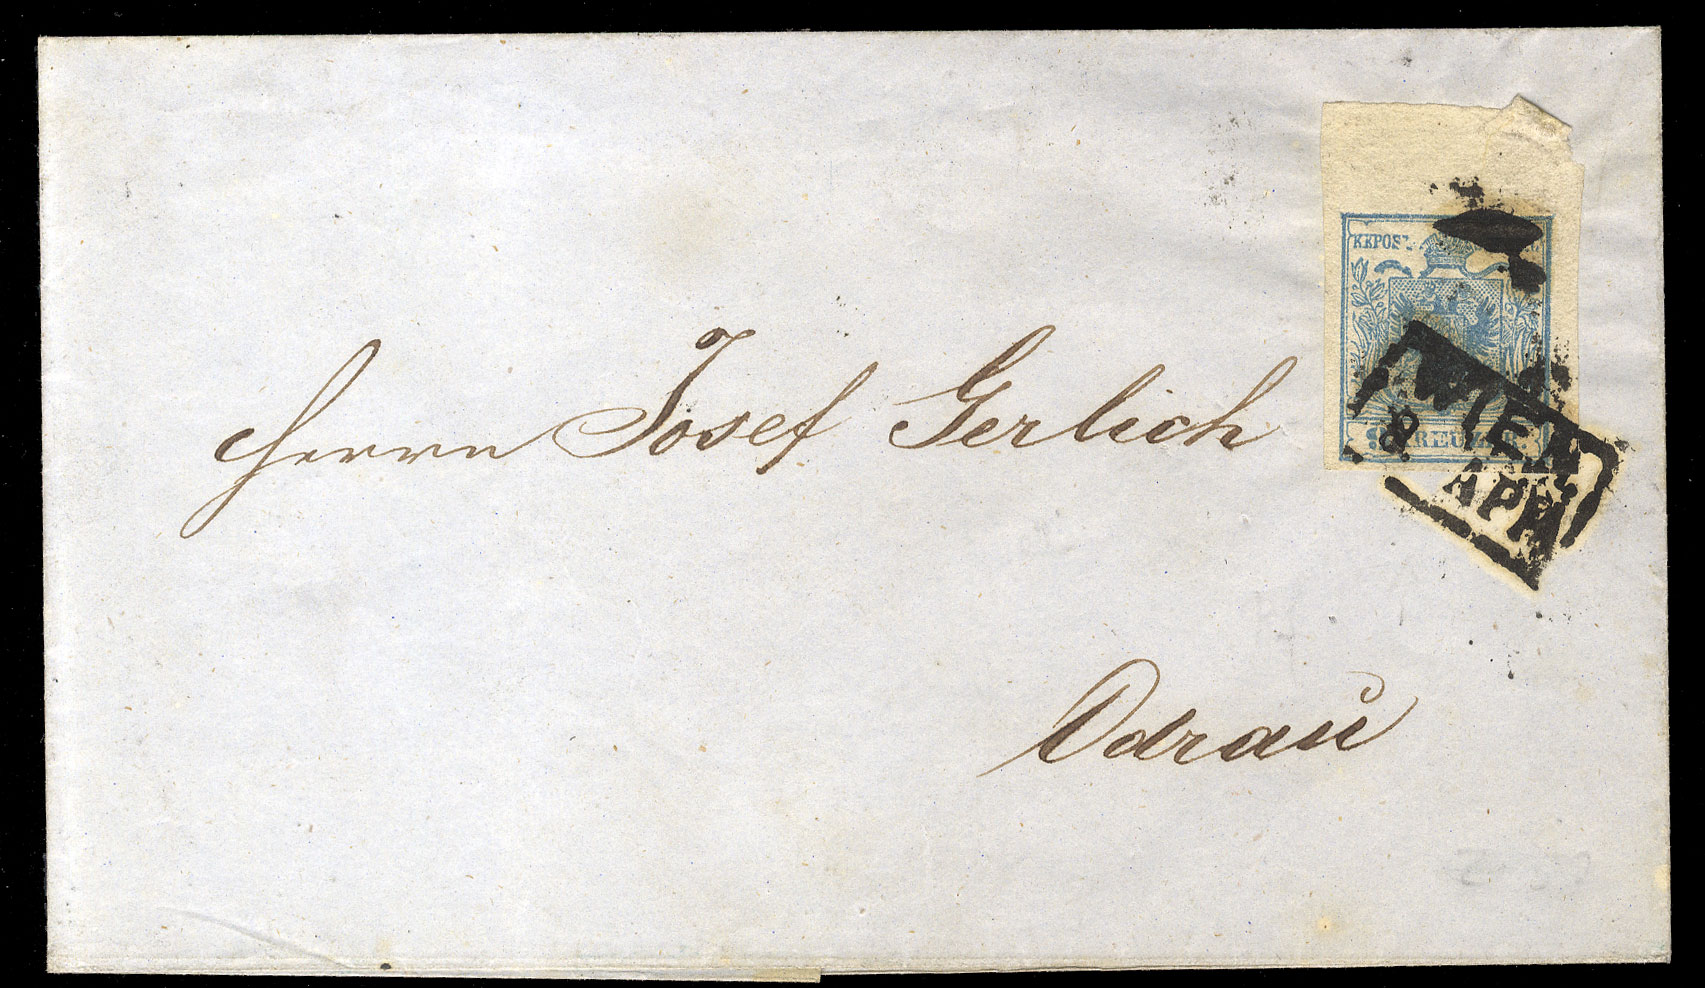 KKPOST
9 KREUZER
WIEN
8 APR
Herrn Josef Gerlich
Odrau